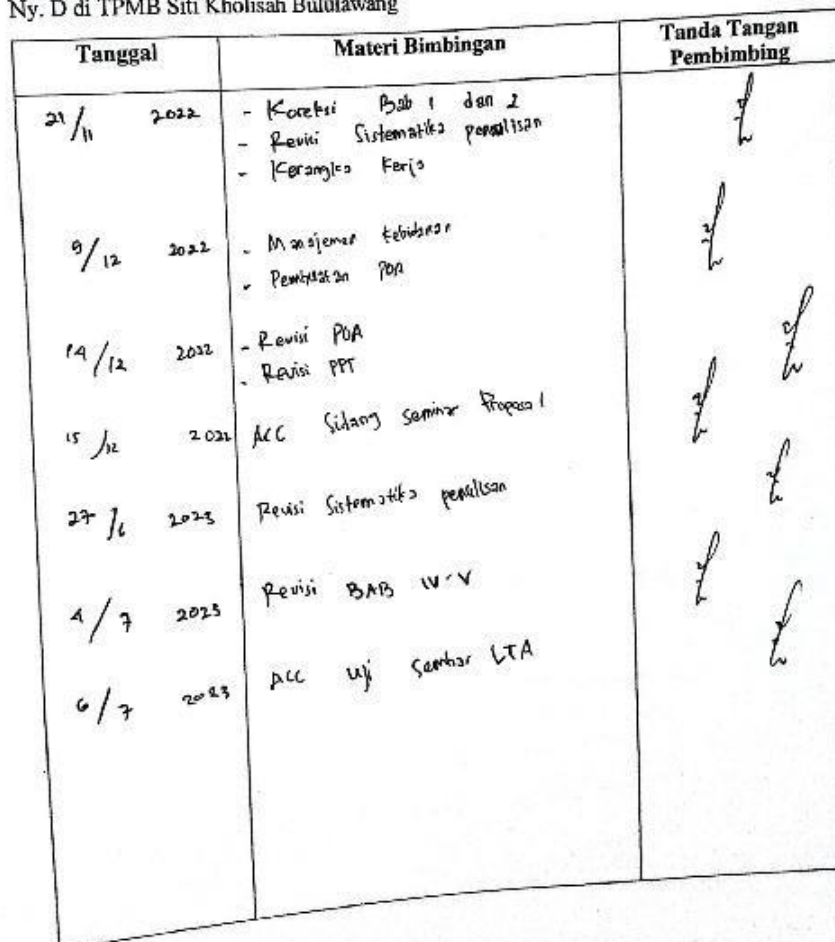 Ny. D di TPMB Siti Kholisah Bululawang
Tanggal Materi Bimbingan Tanda Tangan Pembimbing
21/11 2022 - Koreksi Bab 1 dan 2
- Revisi Sistematika penulisan
- Kerangka Kerja
9/12 2022 - Manajemen kebidanan
- Pembuatan POA
14/12 2022 - Revisi POA
- Revisi PPT
15/12 2022 ACC Sidang Seminar Proposal
27/6 2023 Revisi Sistematika penulisan
4/7 2023 Revisi BAB IV-V
6/7 2023 ACC Uji Seminar LTA